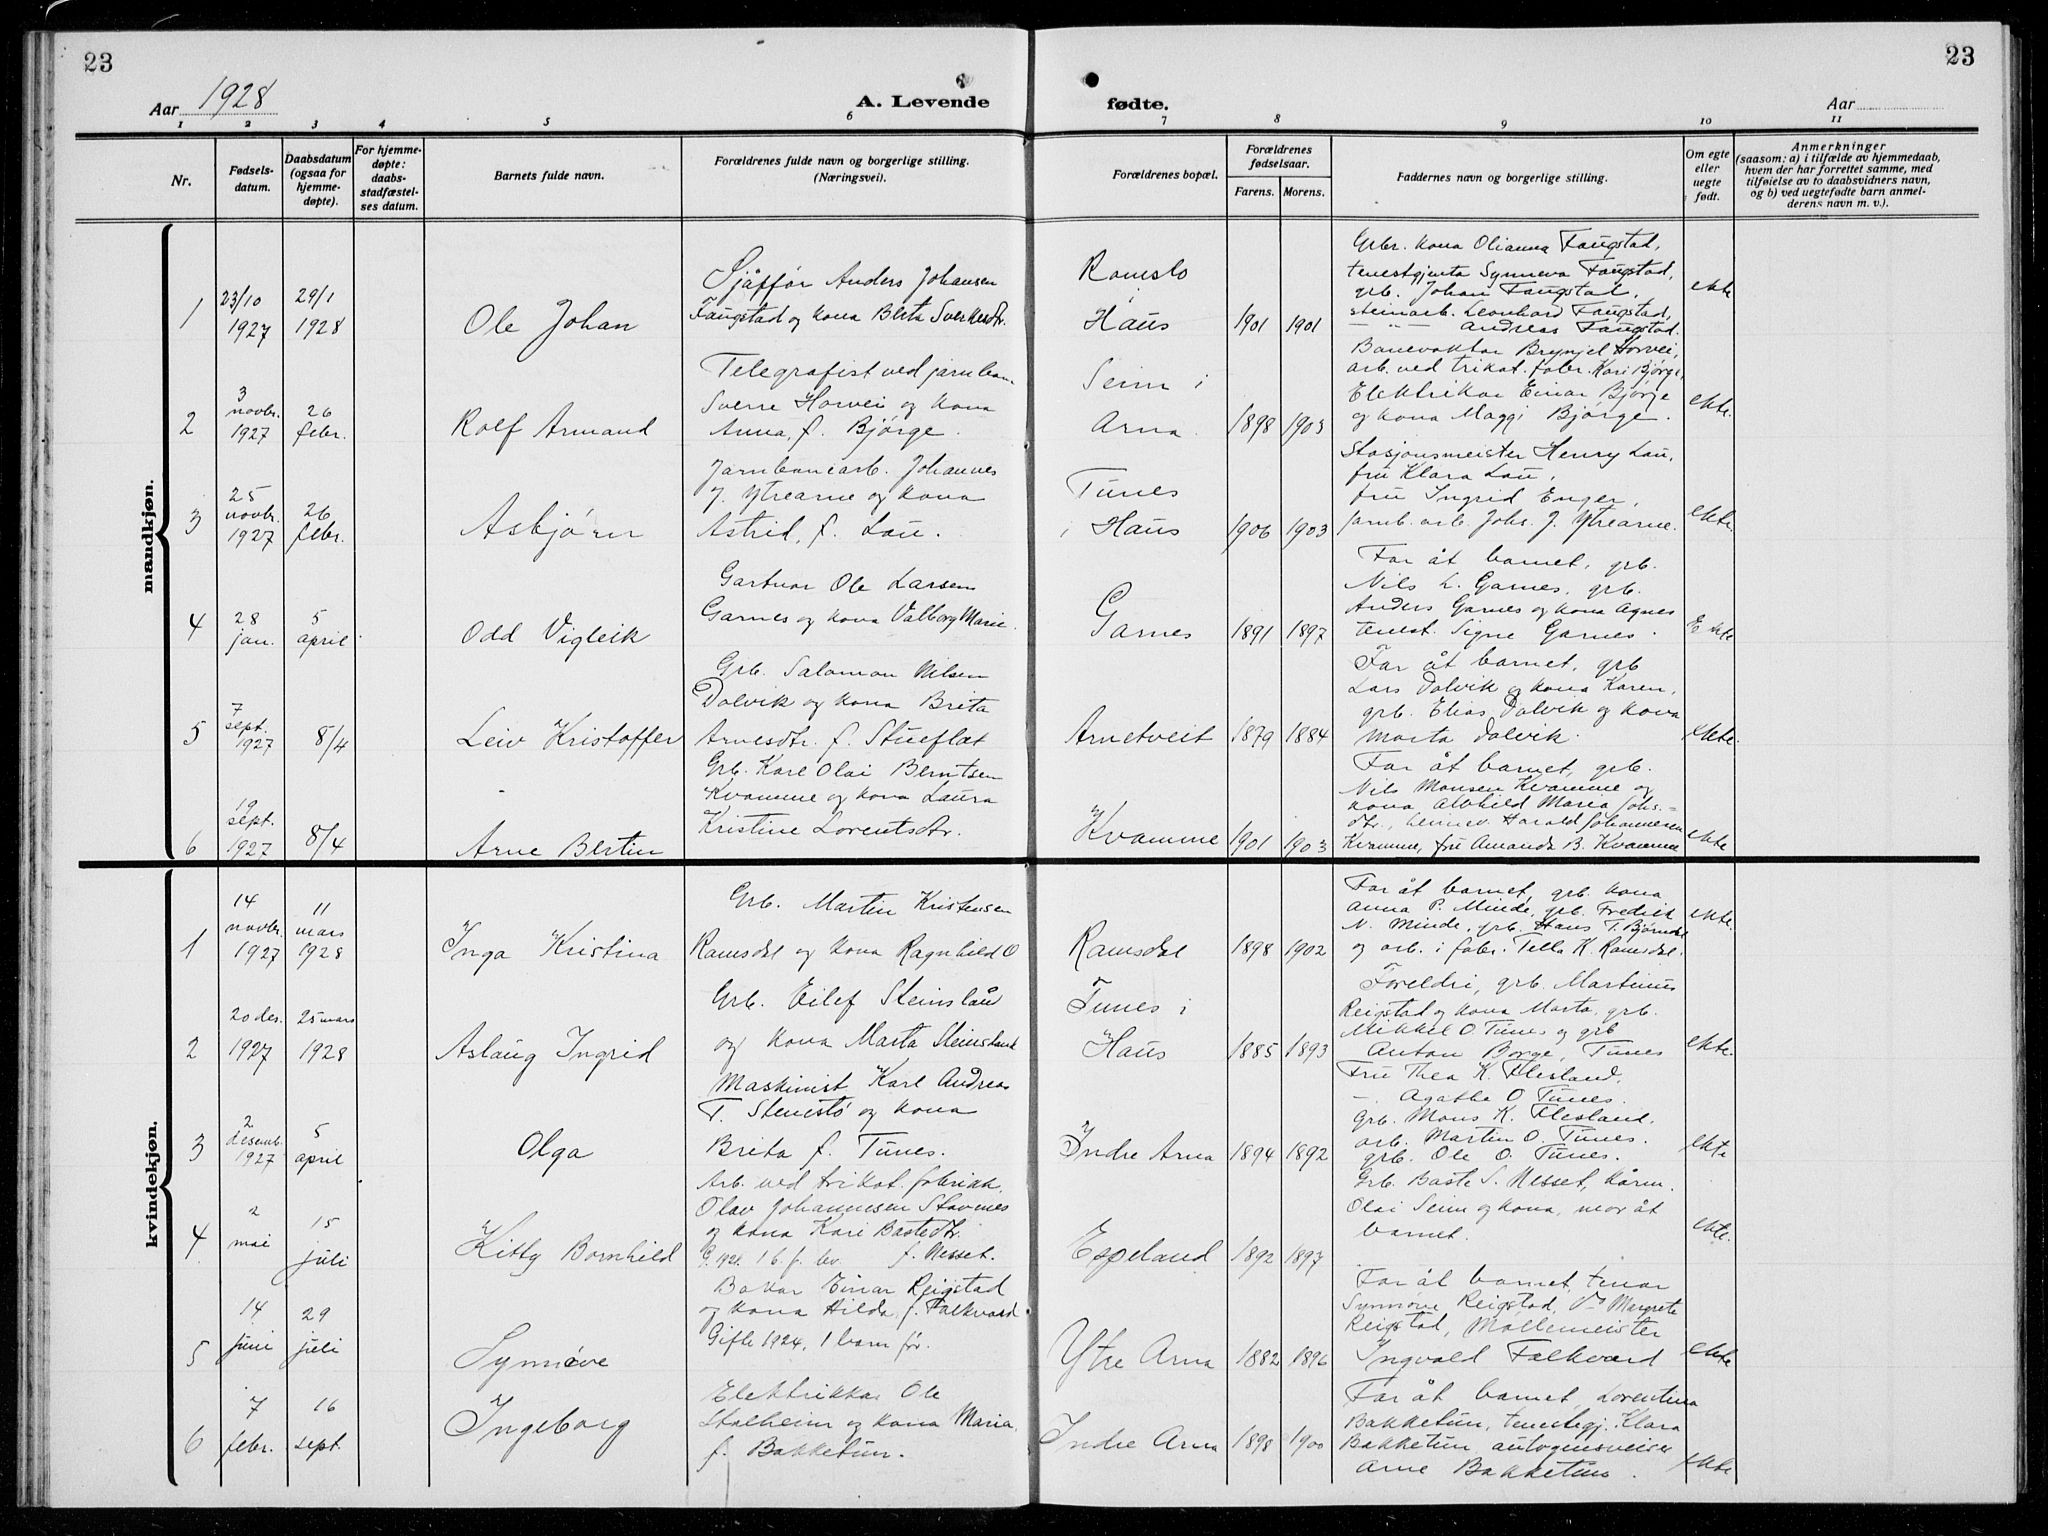 23
23
Aar 1928
A. Levende fødte.
Aar
1 2 3 4 5 6 7 8 9 10 11
Nr.
Fødsels-
datum.
Daabsdatum
(ogsaa for
hjemme-
døpte).
For hjemme-
døpte:
daabs-
stadfæstel-
ses datum.
Barnets fulde navn.
Forældrenes fulde navn og borgerlige stilling.
(Næringsvei).
Forældrenes bopæl.
Forældrenes
fødselsaar.
Farens. Morens.
Faddernes navn og borgerlige stilling.
Om egte
eller
uegte
født.
Anmerkninger
(saasom: a) i tilfælde av hjemmedaab,
hvem der har forrettet samme, med
tilføielse av to daabsvidners navn,
og b) ved uegtefødte barn anmel-
derens navn m. v.).
mandkjøn.
1
23/10
1927
29/1
1928
Ole Johan
Sjåffør Anders Johansen
Faugstad og kona Berta Sverkesdtr.
Romslo
Haus
1901 1901
Grbr. kona Olianna Faugstad,
tenestgjenta Synneva Faugstad,
grb. Johan Faugstad,
steinarb. Leonhard Faugstad,
— " — Andreas Faugstad.
ekte
2
3
novbr.
1927
26
febr.
Rolf Armand
Telegrafist ved jarnban
Sverre Horvei og kona
Anna, f. Bjørge.
Seim i
Arna
1898 1903
Banevaktar Brynjel Horvei,
arb. ved trikot. fabr. Kari Bjørge,
Elektrikar Einar Bjørge
og kona Maggi Bjørge.
ekte.
3
25
novbr.
1927
26
febr.
Asbjørn
Jarnbanearb. Johannes
J. Ytrearne og kona
Astrid, f. Lau.
Tunes
i Haus
1906 1903
Stasjonsmeister Henry Lau,
fru Klara Lau,
fru Ingrid Enger,
jarnb. arb. Johs. J. Ytrearne.
ekte.
4
28
jan.
5
april
Odd Vigleik
Gartnar Ole Larsen
Garnes og kona Valborg Marie.
Garnes
1891 1897
Far åt barnet, grb.
Nils L. Garnes, grb.
Anders Garnes og kona Agnes
tenest. Signe Garnes.
Ekte
5
7
sept.
1927
8/4
Leiv Kristoffer
Grb. Salomon Nilsen
Dalvik og kona Brita
Arnesdtr. f. Stueflat
Arnetveit
1879 1884
Far åt barnet, grb
Lars Dalvik og kona Karen,
grb. Elias Dalvik og kona
Marta Dalvik.
ekte.
6
19
sept.
1927
8/4
Arne Bertin
Grb. Karl Olai Berntsen
Kvamme og kona Laura
Kristine Lorentsdtr.
Kvamme
1901 1903
Far åt barnet, grb.
Nils Monsen Kvamme og
kona Alvhild Maria Johs.=
dtr., Harald Johannesen
Kvamme, fru Amanda B. Kvamme
ekte
kvindekjøn.
1
14
novbr.
1927
11
mars
1928
Inga Kristina
Grb. Martin Kristensen
Ramsdal og kona Ragnhild O
Ramsdal
1898 1902
Far åt barnet, grb. kona
Anna P. Minde, grb. Fredrik
N. Minde, grb. Hans T. Bjørndal
og arb. i fabr. Tella K. Ramsdal.
ekte.
2
20 des.
1927
25 mars
1928
Aslaug Ingrid
Grb. Eilef Steinsland
og kona Marta Steinsland
Tunes i
Haus
1885 1893
Foreldri, grb. Martinus
Reigstad og kona Marta, grb.
Mikkel O. Tunes og grb
Anton Borge, Tunes
ekte.
3
2
desemb.
1927
5
april
Olga
Maskinist Karl Andreas
T. Stenestø og kona
Brita f. Tunes.
Indre Arna
1894 1892
Fru Thea K. Flesland,
—. Agathe O Tunes.
Grb. Mons K. Flesland,
arb. Martin O. Tunes.
grb. Ole O. Tunes.
ekte
4
2
mai
15
juli
Kitty Bornhild
Arb. ved trikot. fabrikk,
Olav Johannesen Stavnes
og kona Kari Bastedtr.
G. 1921. 1 b. f. lev f. Nesset.
Espeland
1892 1897
Grb. Baste S. Nesset, kårm.
Olai Seim og kona, mor åt
barnet.
ekte.
5
14
juni
29
juli
Synnøve
Bakar Einar Reigstad
og kona Hilda, f. Falkvard
Gifte 1924, 1 barn før.
Ytre Arna
1882 1896
Far åt barnet, tenar
Synnøve Reigstad, Do Margrete
Reigstad, Møllemeister
Ingvald Falkvard
ekte
6
7
febr.
16
sept.
Ingeborg
Elektrikkar Ole
Stalheim og kona Maria
f. Bakketun.
Indre Arna
1898 1900
Far åt barnet, Lorentina
Bakketun, tenestegj. Klara
Bakketun, autogensveiser
Arne Bakketun.
ekte